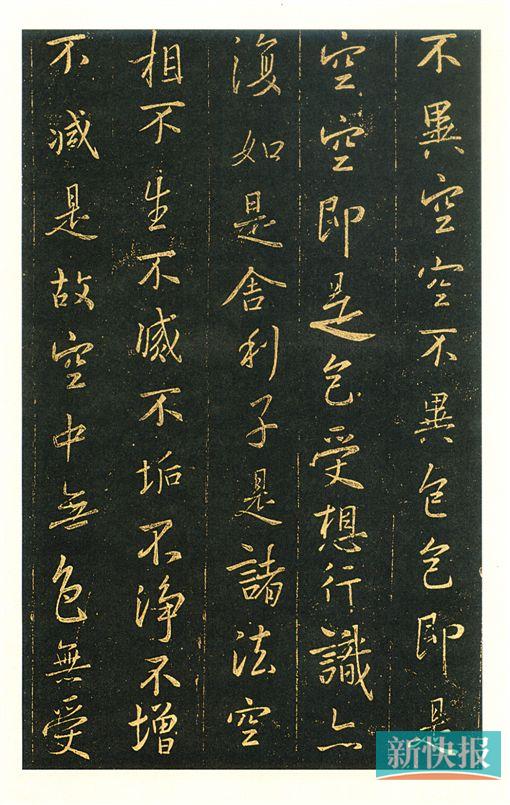 不異空空不異色色即是
空空即是色受想行識亦
復如是舍利子是諸法空
相不生不滅不垢不淨不增
不減是故空中無色無受
新快报